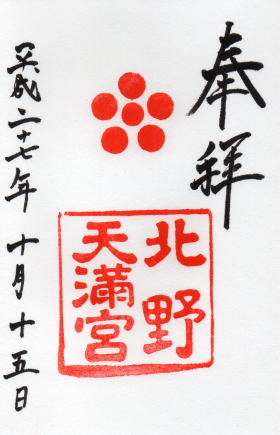 奉拝
北野
天満宮
平成二十七年十月十五日